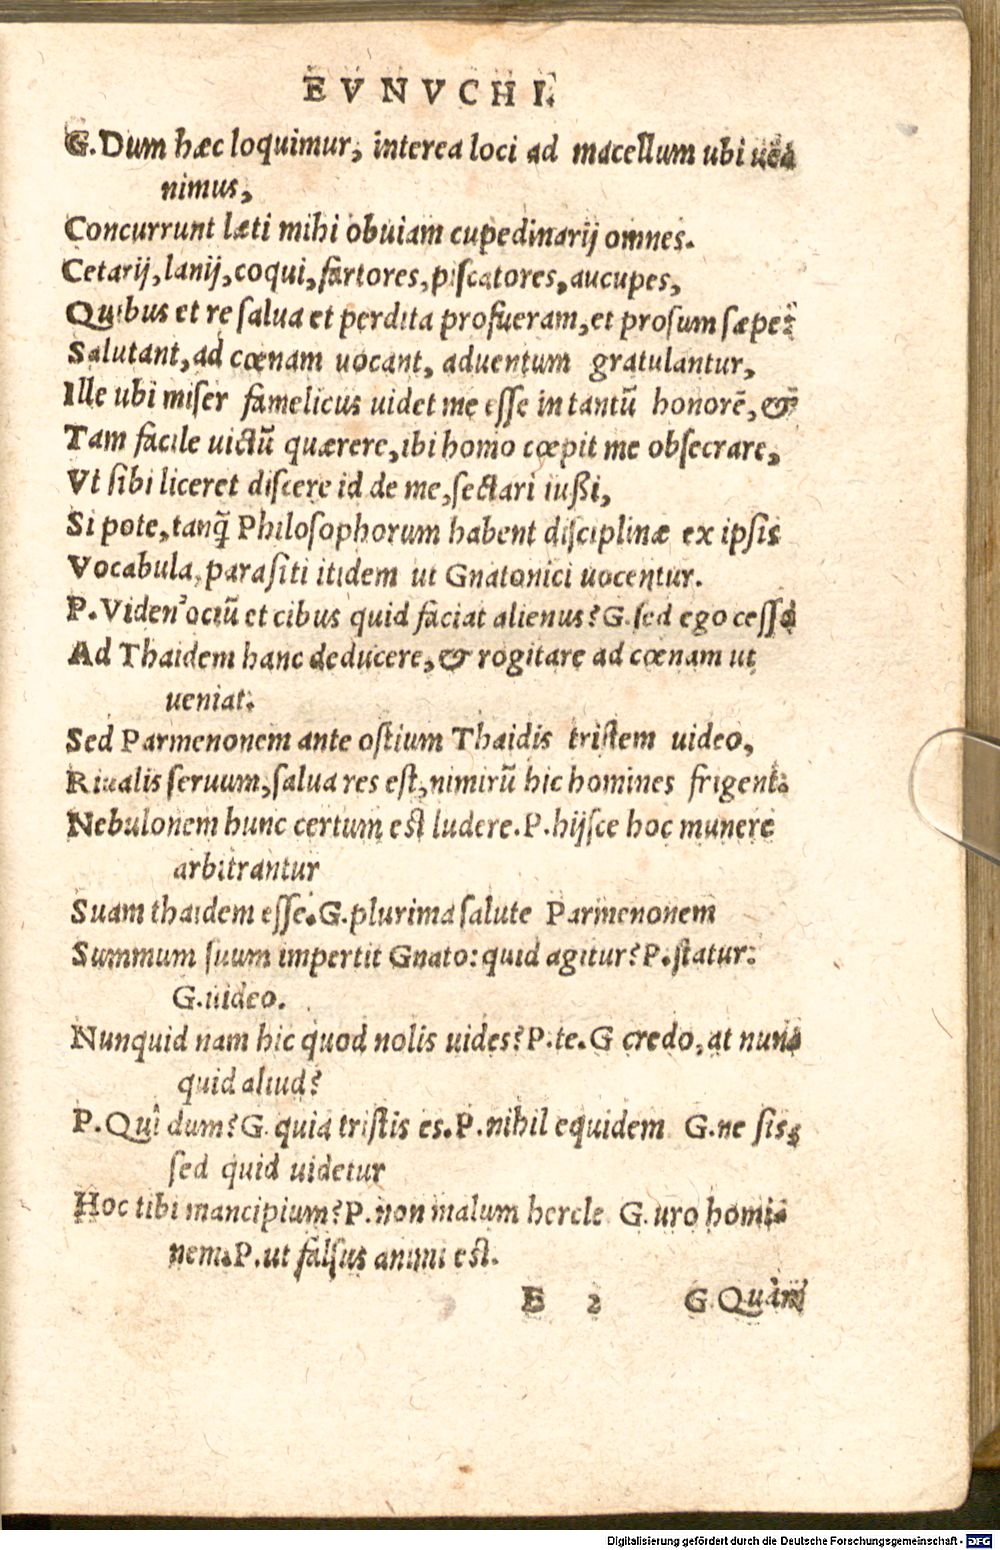 EVNVCHI.
G.Dum hæc loquimur, interea loci ad macellum ubi ueā
nimus,
Concurrunt læti mihi obuiam cupedinarij omnes.
Cetarij, lanij, coqui, fartores, piscatores, aucupes,
Quibus et re salua et perdita profueram, et prosum sæpe:
Salutant, ad cœnam uocant, aduentum gratulantur,
Ille ubi miser famelicus uidet me esse in tantũ honorē, &
Tam facile uictũ quærere, ibi homo cœpit me obsecrare,
Vt sibi liceret discere id de me, sectari iußi,
Si pote, tanq̃ Philosophorum habent disciplinæ ex ipsis
Vocabula, parasiti itidem ut Gnatonici uocentur.
P.Viden' ociũ et cibus quid faciat alienus? G. sed ego cesso
Ad Thaidem hanc deducere, & rogitare ad cœnam ut
ueniat.
Sed Parmenonem ante ostium Thaidis tristem uideo,
Riualis seruum, salua res est, nimirũ hic homines frigent.
Nebulonem hunc certum est ludere. P. hijsce hoc munere
arbitrantur
Suam thaidem esse. G. plurima salute Parmenonem
Summum suum impertit Gnato: quid agitur? P. statur.
G. uideo.
Nunquid nam hic quod nolis uides? P. te. G credo, at nunc
quid aliud?
P. Quî dum? G. quia tristis es. P. nihil equidem G. ne sis,
sed quid uidetur
Hoc tibi mancipium? P. non malum hercle G. uro homi-
nem. P. ut falsus animi est.
E 2 G Quàm
Digitalisierung gefördert durch die Deutsche Forschungsgemeinschaft - DFG